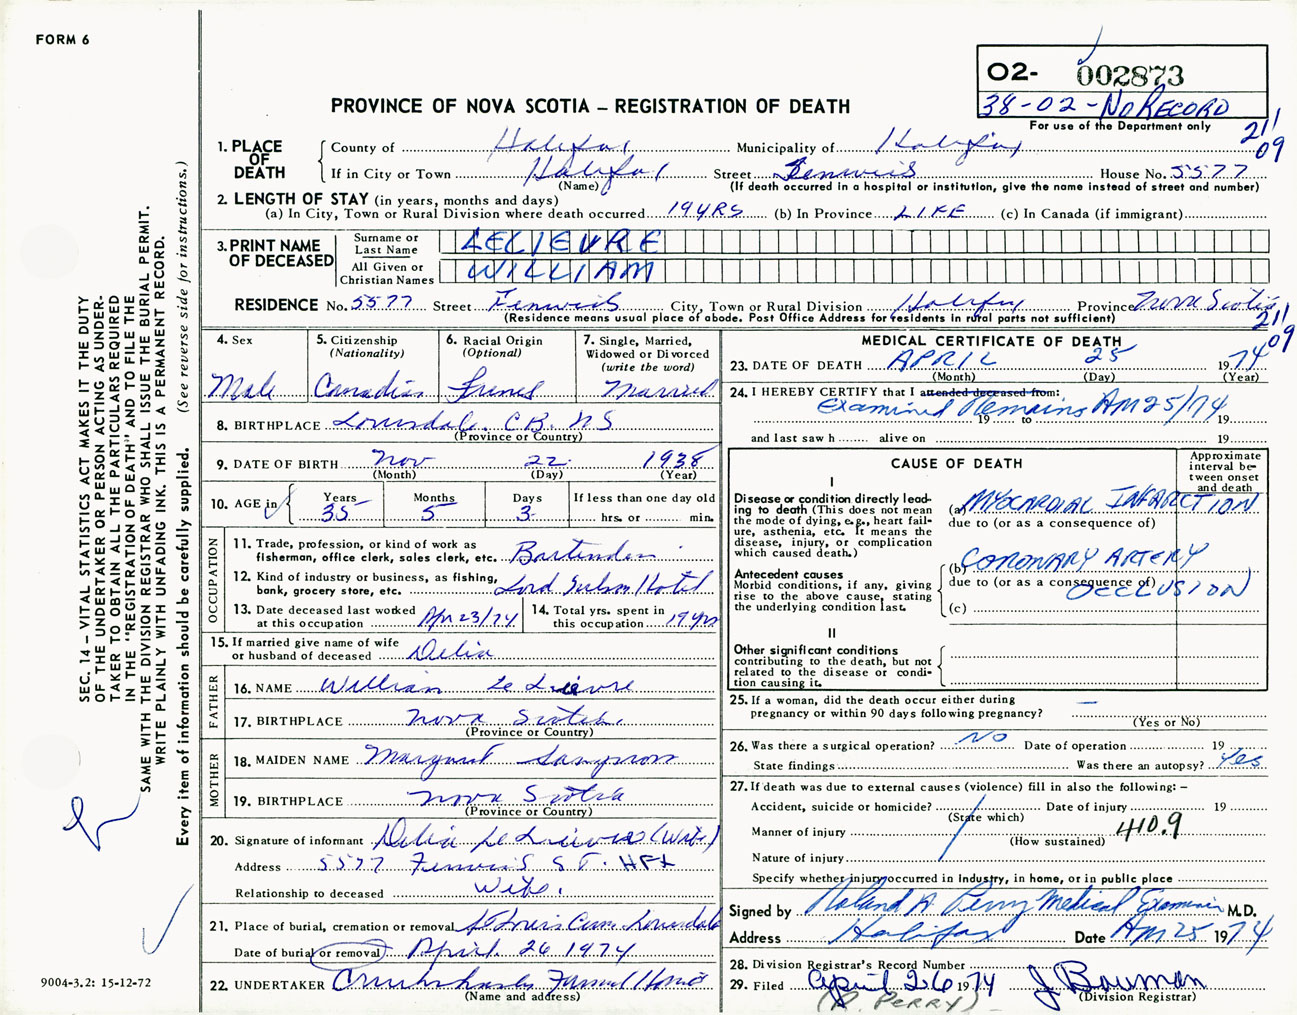 FORM 6
O2- 002873
38-02-NO RECORD
For use of the Department only
211
09
PROVINCE OF NOVA SCOTIA – REGISTRATION OF DEATH
1. PLACE OF DEATH
County of Halifax Municipality of Halifax
If in City or Town Halifax Street Fenwick House No. 5577
(Name) (If death occurred in a hospital or institution, give the name instead of street and number)
2. LENGTH OF STAY (in years, months and days)
(a) In City, Town or Rural Division where death occurred 19YRS (b) In Province LIFE (c) In Canada (if immigrant)
3. PRINT NAME OF DECEASED
Surname or Last Name LELIEVRE
All Given or Christian Names WILLIAM
RESIDENCE No. 5577 Street Fenwick City, Town or Rural Division Halifax Province Nova Scotia
(Residence means usual place of abode. Post Office Address for residents in rural parts not sufficient)
211
09
4. Sex
Male
5. Citizenship (Nationality)
Canadian
6. Racial Origin (Optional)
French
7. Single, Married, Widowed or Divorced (write the word)
Married
8. BIRTHPLACE Louisdale C.B. N.S
(Province or Country)
9. DATE OF BIRTH Nov 22 1938
(Month) (Day) (Year)
10. AGE in Years 35 Months 5 Days 3 If less than one day old
hrs. or min.
OCCUPATION
11. Trade, profession, or kind of work as fisherman, office clerk, sales clerk, etc. Bartender
12. Kind of industry or business, as fishing, bank, grocery store, etc. Lord Nelson Hotel
13. Date deceased last worked at this occupation Apr 23/74
14. Total yrs. spent in this occupation 19 yrs
15. If married give name of wife or husband of deceased Delia
FATHER
16. NAME William Le Lievre
17. BIRTHPLACE Nova Scotia
(Province or Country)
MOTHER
18. MAIDEN NAME Margaret Sampson
19. BIRTHPLACE Nova Scotia
(Province or Country)
20. Signature of informant Delia Le Lievre (Wife)
Address 5577 Fenwick ST. HFX
Relationship to deceased Wife.
21. Place of burial, cremation or removal St Louis Cem Louisdale
Date of burial or removal April 26 1974
22. UNDERTAKER Cruikshanks Funeral Home
(Name and address)
MEDICAL CERTIFICATE OF DEATH
23. DATE OF DEATH APRIL 25 1974
(Month) (Day) (Year)
24. I HEREBY CERTIFY that I attended deceased from:
Examined Remains AM 25/74
19 to 19
and last saw h alive on 19
CAUSE OF DEATH
Approximate interval between onset and death
I
Disease or condition directly leading to death (This does not mean the mode of dying, e.g., heart failure, asthenia, etc. It means the disease, injury, or complication which caused death.)
(a) MYOCARDIAL INFARCTION
due to (or as a consequence of)
Antecedent causes
Morbid conditions, if any, giving rise to the above cause, stating the underlying condition last.
(b) CORONARY ARTERY
due to (or as a consequence of) OCCLUSION
(c)
II
Other significant conditions
contributing to the death, but not related to the disease or condition causing it.
25. If a woman, did the death occur either during pregnancy or within 90 days following pregnancy? –
(Yes or No)
26. Was there a surgical operation? No Date of operation 19
State findings Was there an autopsy? Yes
27. If death was due to external causes (violence) fill in also the following: –
Accident, suicide or homicide? Date of injury 19
(State which)
Manner of injury 410.9
(How sustained)
Nature of injury
Specify whether injury occurred in Industry, in home, or in public place
Signed by Roland A Perry Medical Examiner M.D.
Address Halifax Date AM 25 1974
28. Division Registrar's Record Number
29. Filed April 26 1974 J Bowman
(Division Registrar)
(R. PERRY)
SEC. 14 – VITAL STATISTICS ACT MAKES IT THE DUTY
OF THE UNDERTAKER OR PERSON ACTING AS UNDER-
TAKER TO OBTAIN ALL THE PARTICULARS REQUIRED
IN THE "REGISTRATION OF DEATH" AND TO FILE THE
SAME WITH THE DIVISION REGISTRAR WHO SHALL ISSUE THE BURIAL PERMIT.
WRITE PLAINLY WITH UNFADING INK. THIS IS A PERMANENT RECORD.
Every item of information should be carefully supplied. (See reverse side for instructions.)
9004-3.2: 15-12-72